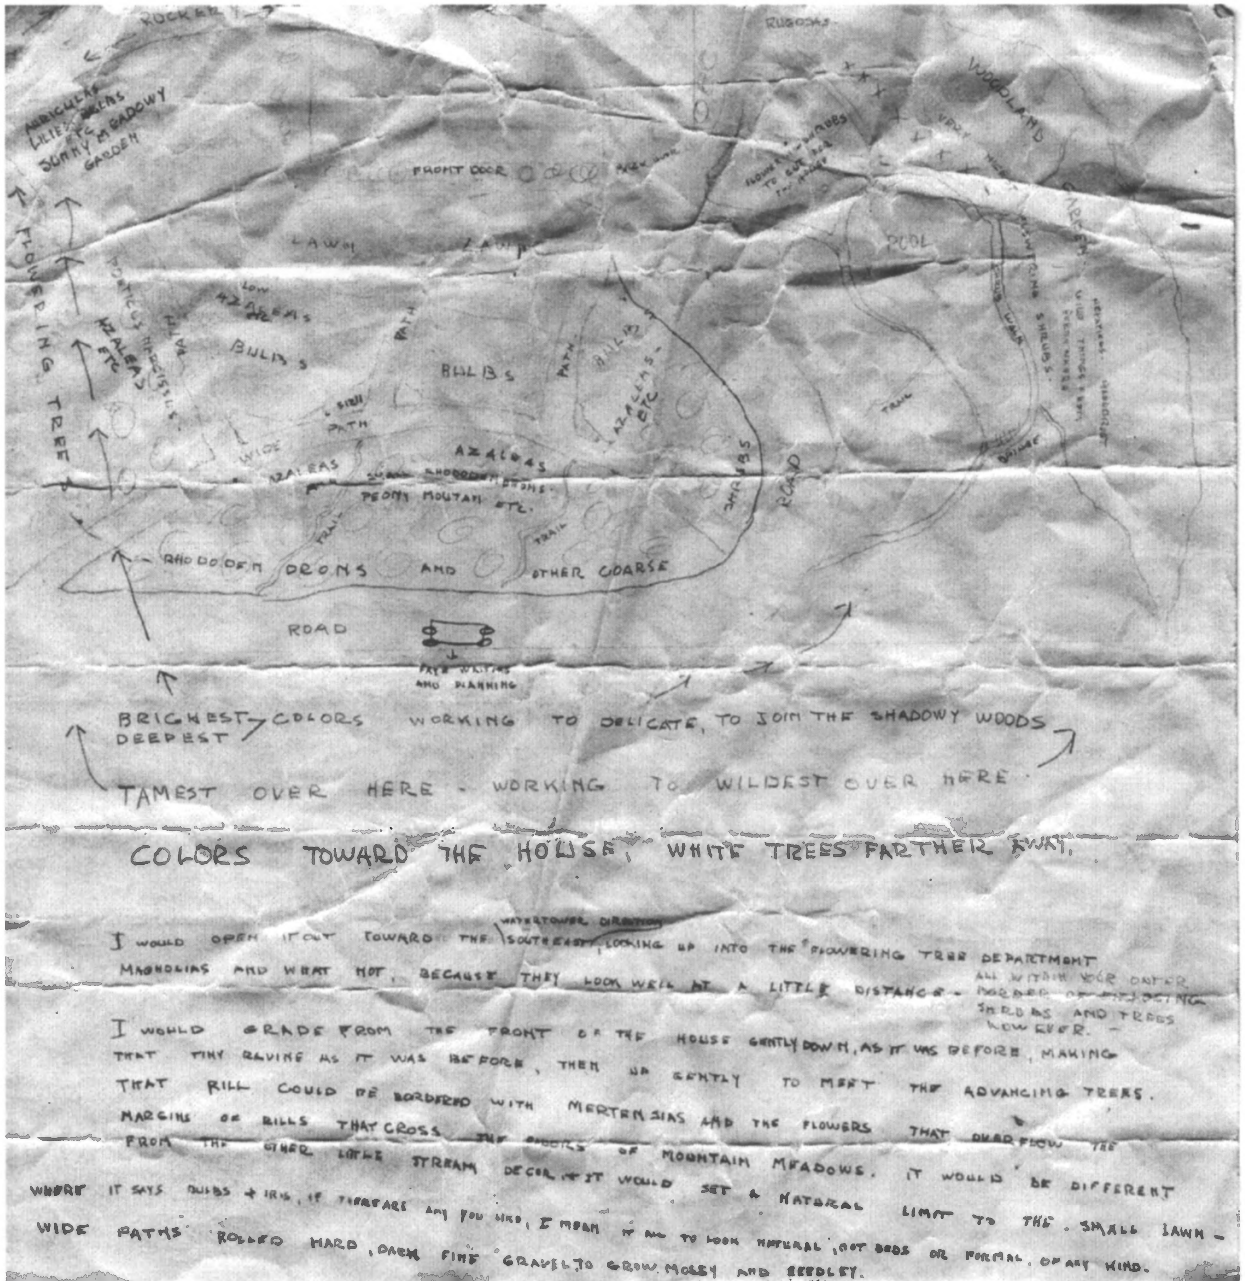 ROCKERY
RUGOSAS
WOODLAND
AURICULAS
SUNNY MEADOWY
GARDEN
FRONT DOOR
VERY
GARDEN
FLOWERING TREES
LAWN
LAWN
POOL
PATH
LOW
AZALEAS
ETC
BULBS
AZALEAS
ETC
POETICUS NARCISSUS
PATH
BULBS
PATH
BULBS
AZALEAS
ETC
WALK
SHRUBS
TRAIL
PATH
WIDE
AZALEAS
AZALEAS
SMALL RHODODENDRONS
PEONY MOUTAN ETC.
SHRUBS
ROAD
BRIDGE
TRAIL
TRAIL
RHODODENDRONS AND OTHER COARSE
ROAD
FAYE WAITING
AND PLANNING
BRIGHEST
DEEPEST
COLORS WORKING TO DELICATE, TO JOIN THE SHADOWY WOODS
TAMEST OVER HERE - WORKING TO WILDEST OVER HERE.
COLORS TOWARD THE HOUSE, WHITE TREES FARTHER AWAY.
WATERTOWER DIRECTION
I WOULD OPEN IT OUT TOWARD THE SOUTHEAST, LOOKING UP INTO THE FLOWERING TREE DEPARTMENT
MAGNOLIAS AND WHAT NOT, BECAUSE THEY LOOK WELL AT A LITTLE DISTANCE -
ALL WITHIN YOUR OUTER
BORDER OF ENCLOSING
SHRUBS AND TREES
HOWEVER. -
I WOULD GRADE FROM THE FRONT OF THE HOUSE GENTLY DOWN, AS IT WAS BEFORE, MAKING
THAT TINY RAVINE AS IT WAS BEFORE, THEN UP GENTLY TO MEET THE ADVANCING TREES.
THAT RILL COULD BE BORDERED WITH MERTENSIAS AND THE FLOWERS THAT OVERFLOW THE
MARGINS OF RILLS THAT CROSS THE FLOORS OF MOUNTAIN MEADOWS. IT WOULD BE DIFFERENT
FROM THE OTHER LITTLE STREAM DECOR. + IT WOULD SET A NATURAL LIMIT TO THE SMALL LAWN -
WHERE IT SAYS BULBS + IRIS, IF THERE ARE ANY YOU LIKE, I MEAN IT ALL TO LOOK NATURAL, NOT BEDS OR FORMAL, OF ANY KIND.
WIDE PATHS ROLLED HARD, DARK FINE GRAVEL, TO GROW MOSSY AND NEEDLEY.